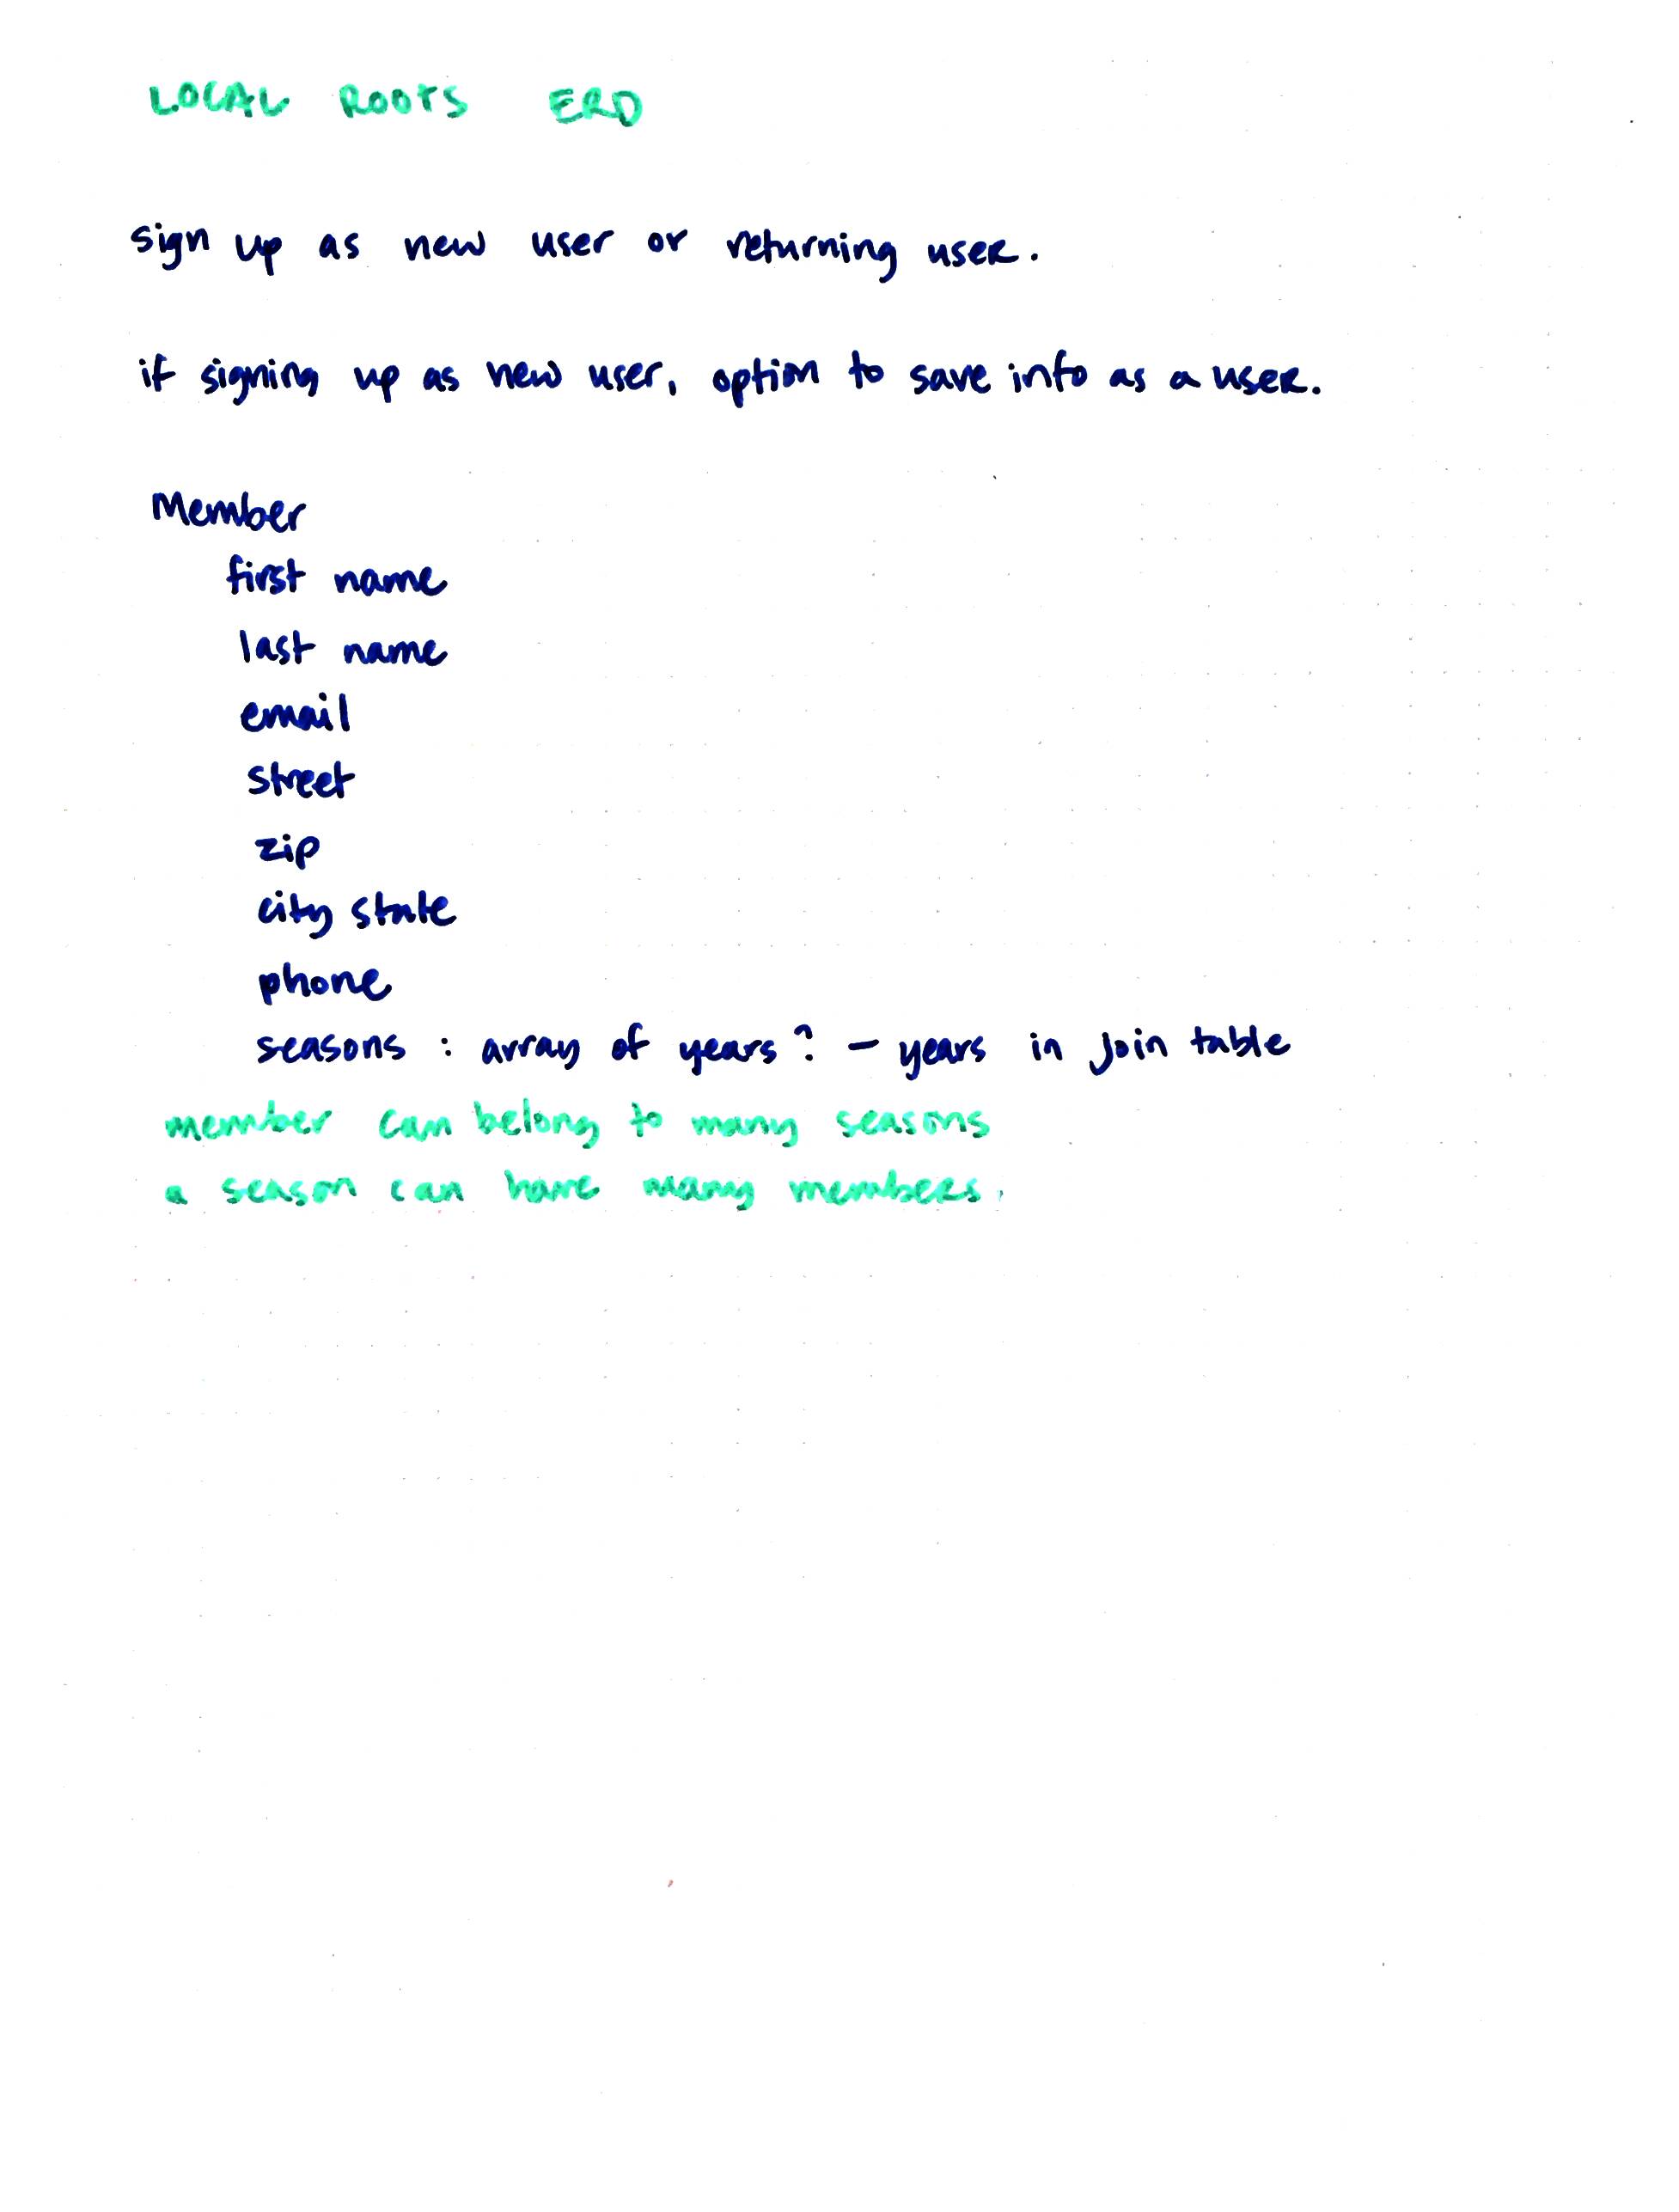 LOCAL ROOTS ERD
sign up as new user or returning user.
if signing up as new user, option to save info as a user.
Member
first name
last name
email
street
zip
city state
phone
seasons : array of years? - years in join table
member can belong to many seasons
a season can have many members.